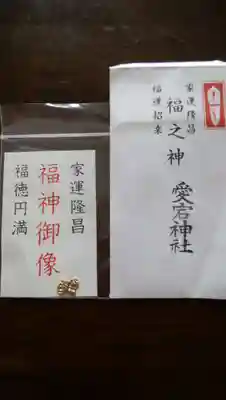 家運隆昌
福神御像
福徳円満
家運隆昌
福運招来
福之神
愛宕神社